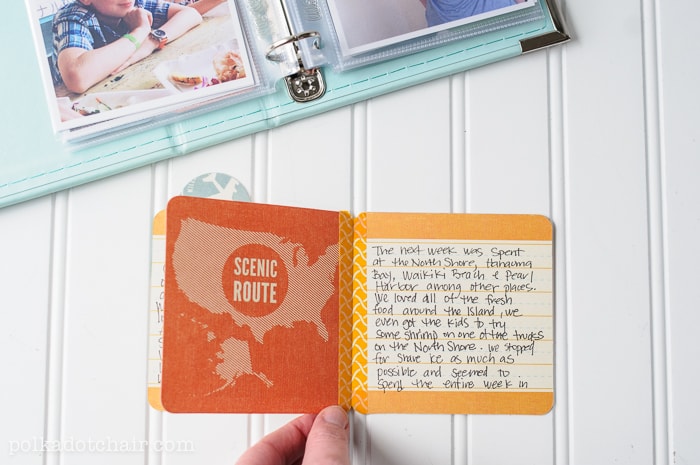 SCENIC
ROUTE
The next week was spent
at the North Shore, Hanauma
Bay, Waikiki Beach & Pearl
Harbor among other places.
We loved all of the fresh
food around the Island, we
even got the kids to try
some shrimp on one of the trucks
on the North Shore. We stopped
for Shave Ice as much as
possible and seemed to
spend the entire week in
polkadotchair.com